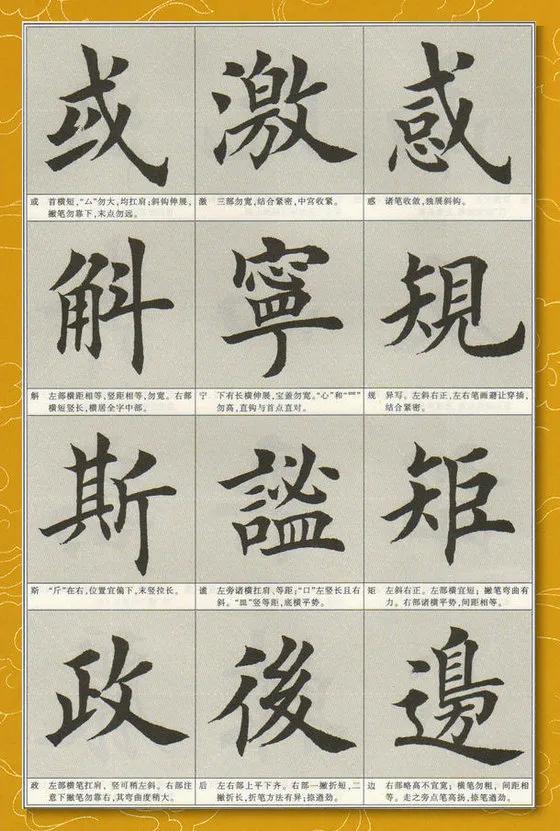 或 激 感
或 首横短，“厶”勿大，均扛肩；斜钩伸展，
撇笔勿靠下，末点勿远。
激 三部勿宽，结合紧密，中宫收紧。
感 诸笔收敛，独展斜钩。
斛 寧 䂓
斛 左部横距相等，竖距相等，勿宽。右部
横短竖长，横居全字中部。
宁 下有长横伸展，宝盖勿宽。“心”和“罒”
勿高，直钩与首点直对。
规 异写。左斜右正，左右笔画避让穿插，
结合紧密。
斯 謐 矩
斯 “斤”在右，位置宜偏下，末竖拉长。
谧 左旁诸横扛肩、等距；“口”左竖长且右
斜。“皿”竖等距，底横平势。
矩 左斜右正。左部横宜短；撇笔弯曲有
力。右部诸横平势，间距相等。
政 後 邊
政 左部横笔扛肩，竖可稍左斜。右部注
意下撇笔勿靠右，其弯曲度稍大。
后 左右部上平下齐。右部一撇折短，二
撇折长，折笔方法有异；捺遒劲。
边 右部略高不宜宽；横笔勿粗，间距相
等。走之旁点笔高扬，捺笔遒劲。